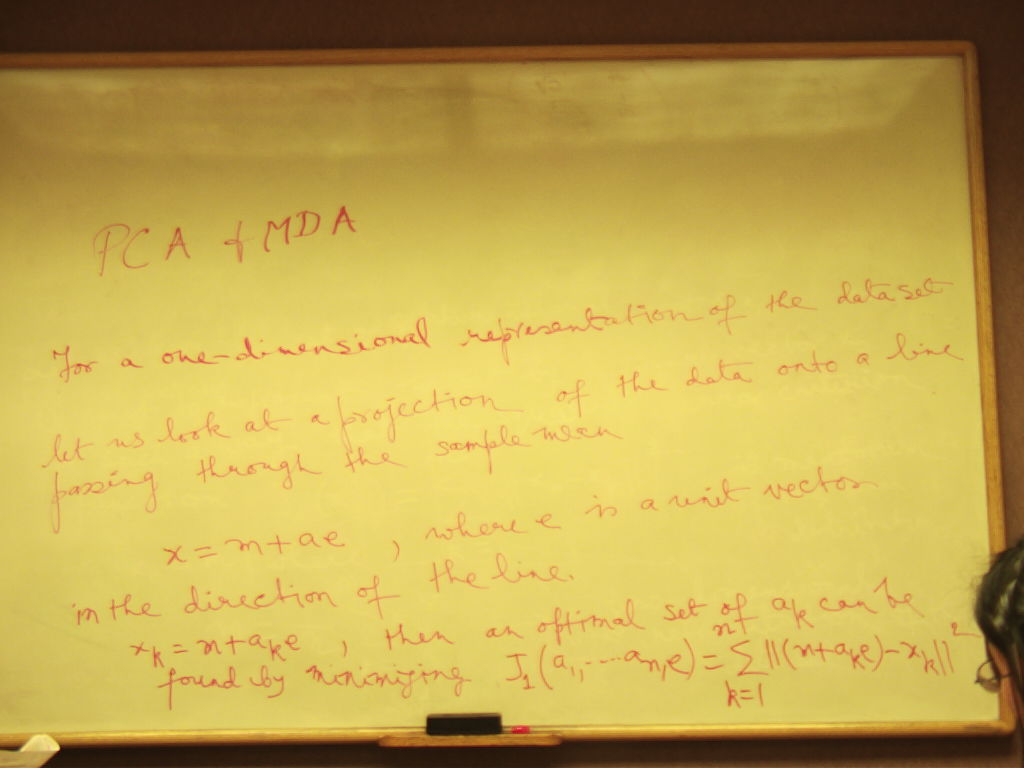 PCA & MDA
For a one-dimensional representation of the dataset
let us look at a projection of the data onto a line
passing through the sample mean
x = m + ae , where e is a unit vector
in the direction of the line.
x_k = m + a_k e , then an optimal set of a_k can be
found by minimizing J_1(a_1, ... a_n, e) = Σ_{k=1}^{n} ||(m + a_k e) - x_k||^2